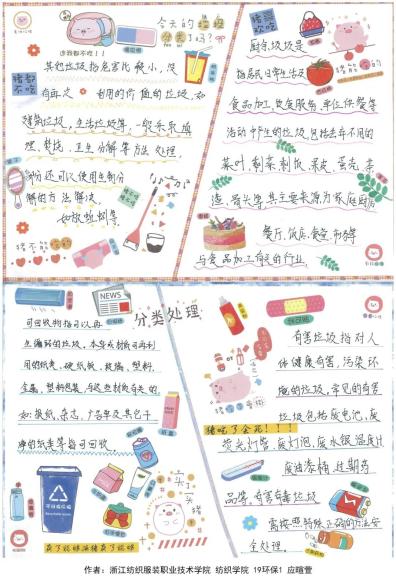 今天的垃圾
分类了吗?
连我都不吃!!
猪都
不吃
其他垃圾指危害比较小,没
有再次
利用的价值的垃圾,如
建筑垃圾,生活垃圾等,一般采取填
理,焚烧,卫生分解等方法处理,
部分还可以使用生物分
解的方法解决,
如放蚯蚓等
猪喜
欢吃
厨余垃圾是
指居民日常生活及
食品加工,饮食服务,单位供餐等
活动中产生的垃圾,包括丢弃不用的
菜叶,剩菜,剩饭,果皮,蛋壳,茶
渣,骨头等,其主要来源为家庭厨房
餐厅,饭店,食堂,市场等
与食品加工有关的行业
NEWS
分类处理
可回收物指可以再
生循环的垃圾,本身或材质可再利
用的纸类,硬纸板,玻璃,塑料,
金属,塑料包装,与这些材质有关的
如报纸,杂志,广告单及其它干
净的纸类等皆可回收
可回收物
卖了能够
有害垃圾指对人
体健康有害,污染环
境的垃圾,常见的有害
垃圾包括废电池,废
猪吃了会死!!!
荧光灯管,废灯泡,废水银温度计
废油漆桶,过期药
品等,有害有毒垃圾
需按照特殊正确的方法安
全处理。
作者:浙江纺织服装职业技术学院 纺织学院 19环保1 应暄萱